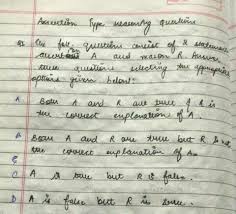 Assertion Type reasoning question
Q1 The foll. question consist of 2 statements
A and reason R. Answer
these question selecting the appropriate
options given below:
A Both A and R are true & R is
the correct explanation of A.
B Both A and R are true but R is not
the correct explanation of A.
C A is true but R is false.
D A is false but R is true.